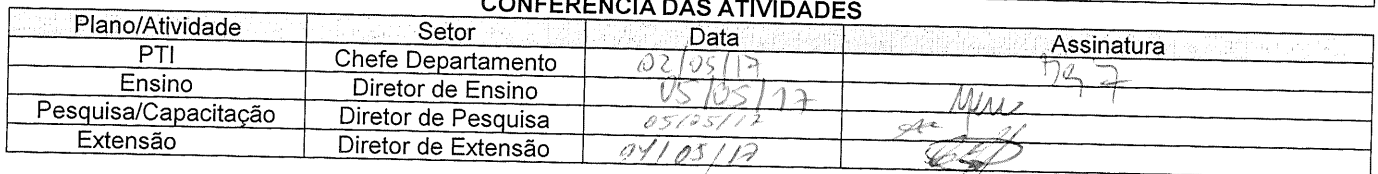 CONFERÊNCIA DAS ATIVIDADES
Plano/Atividade Setor Data Assinatura
PTI Chefe Departamento 02/05/17
Ensino Diretor de Ensino 05/05/17
Pesquisa/Capacitação Diretor de Pesquisa 05/05/17
Extensão Diretor de Extensão 04/05/17